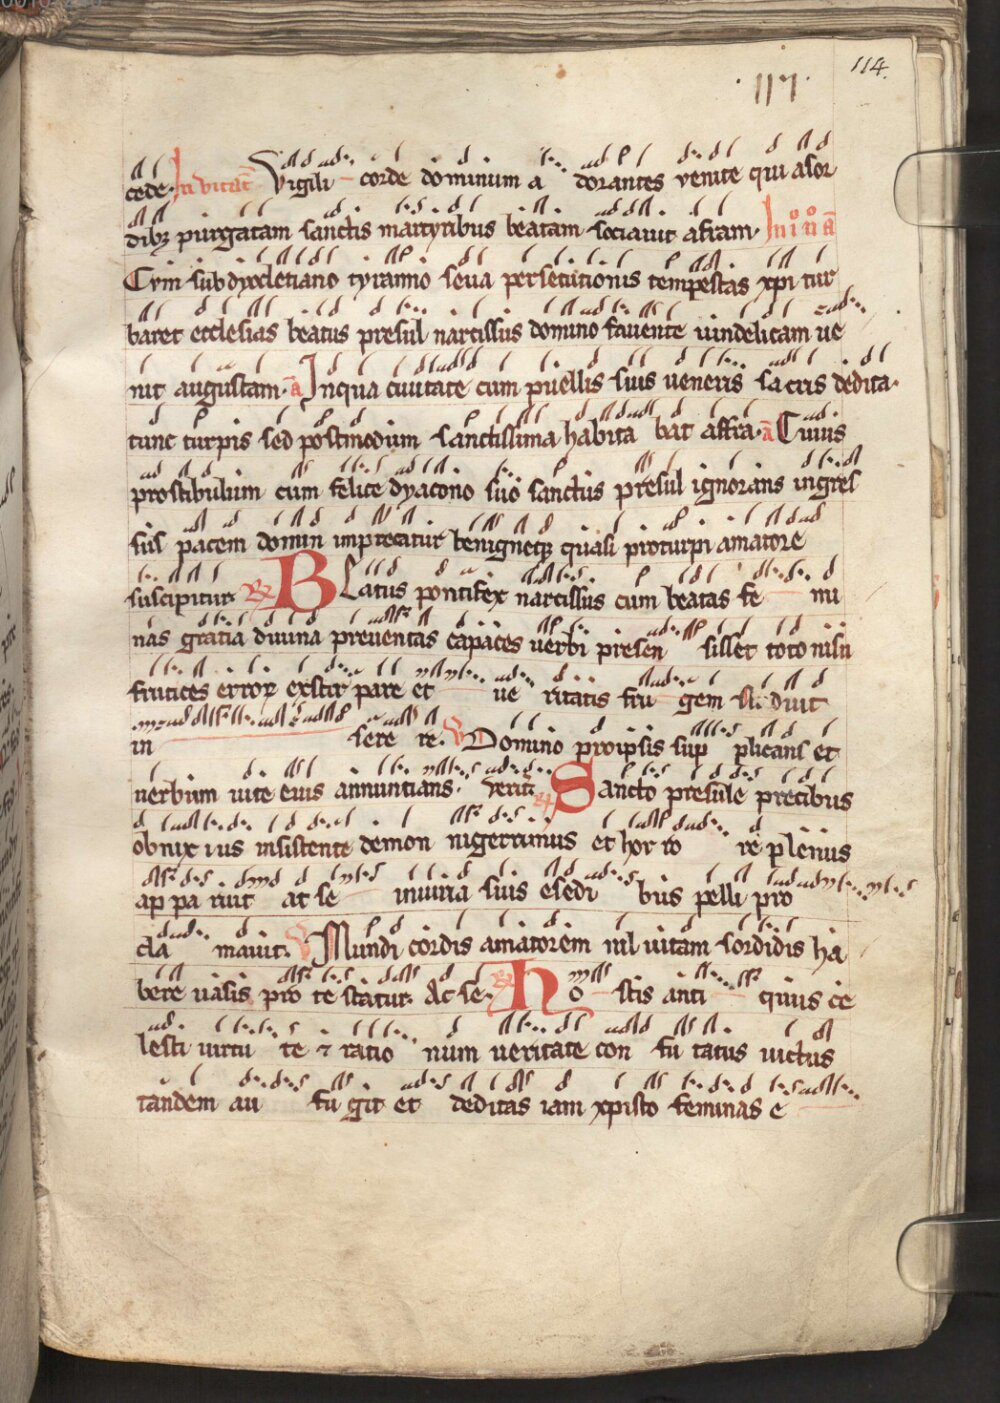 114.
117.
cede. In vitat Vigili corde dominum a dorantes venite qui a sor
dibꝫ purgatam sanctis martyribus beatam sociavit afram. In i n a
Cvm sub dyocletiano tyranno seva persecutionis tempestas xpi tur
baret ecclesias beatus presul narcissus domino favente vindelicam ve
nit augustam. a Inqua civitate cum puellis suis veneris sacris dedita
tunc turpis sed postmodum sanctissima habita bat affra. a Cuius
prostibulum cum felice dyacono suo sanctus presul ignorans ingres
sus pacem domin imprecatur benigneqꝫ quasi pro turpi amatore
suscipitur. R BLatus pontifex narcissus cum beatas fe mi
nas gratia divina preventas capaces verbi presen sisset toto nisu
frutices erroꝝ exstir pare et ve ritatis fru gem studuit
in sere re. V Domino pro ipsis sup plicans et
verbum vite eius annuntians. verit. R Sancto presule precibus
obnix ius insistente demon nigerrimus et hor ro re plenus
ap pa ruit ac se invina suis esedi bus pelli pro
cla mavit. V Mundi cordis amatorem nil vitam sordidis ha
bere vasis pro te statur. Ac se. R Ho stis anti quus ce
lesti virtu te ⁊ ratio num veritate con fu tatus victus
tandem au fu git et deditas iam xpisto feminas e